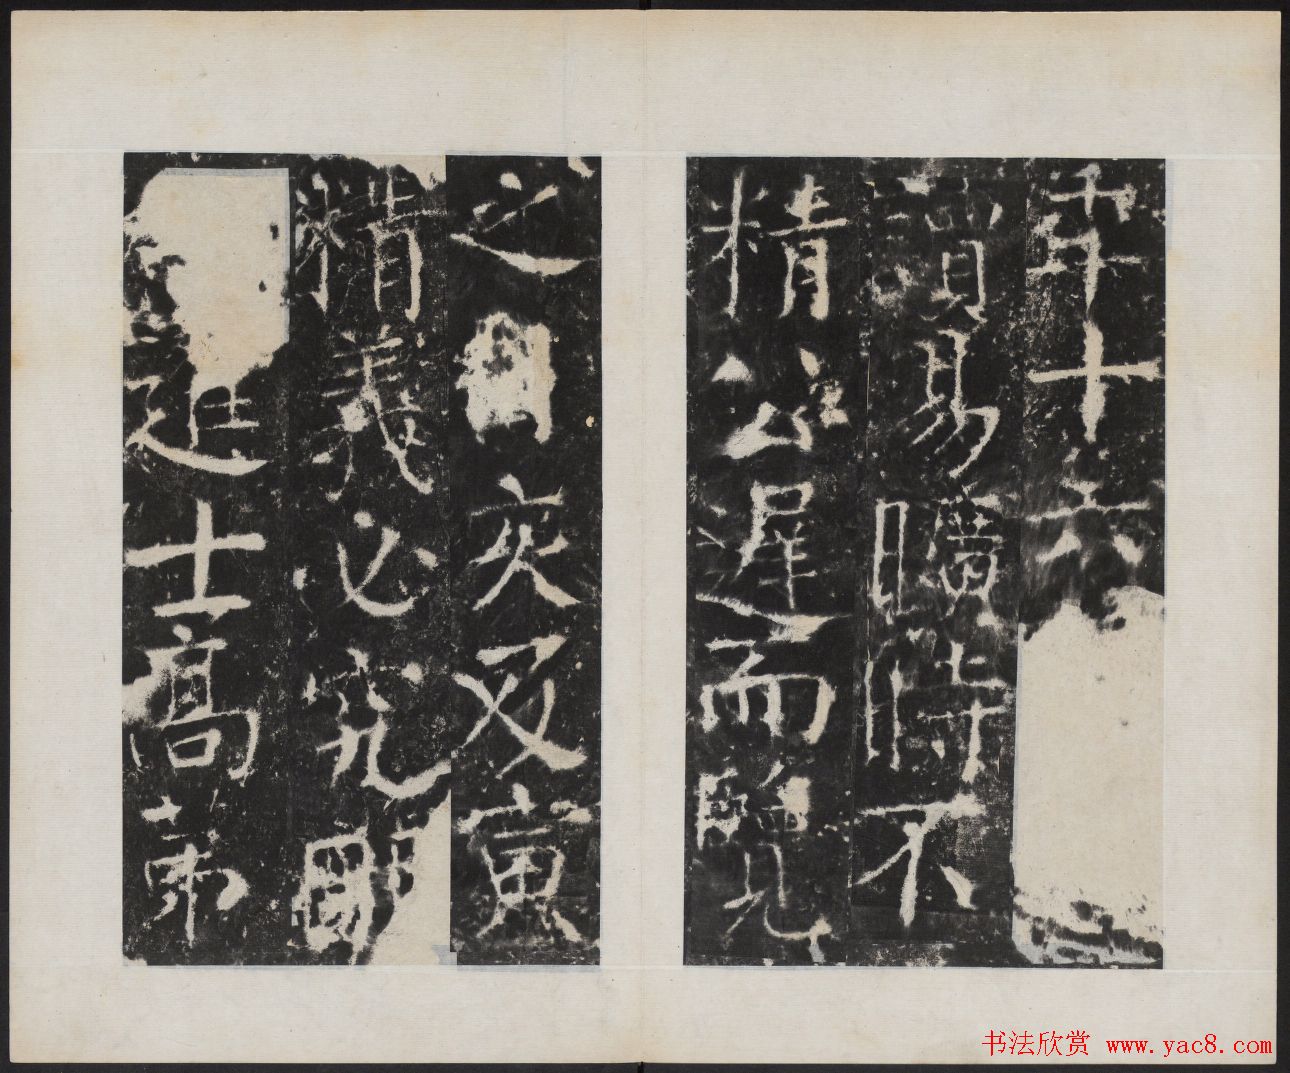 年十六
易 時不
精 遲而覽
之 亥 寅
精義必究
進士高第
书法欣赏 www.yac8.com